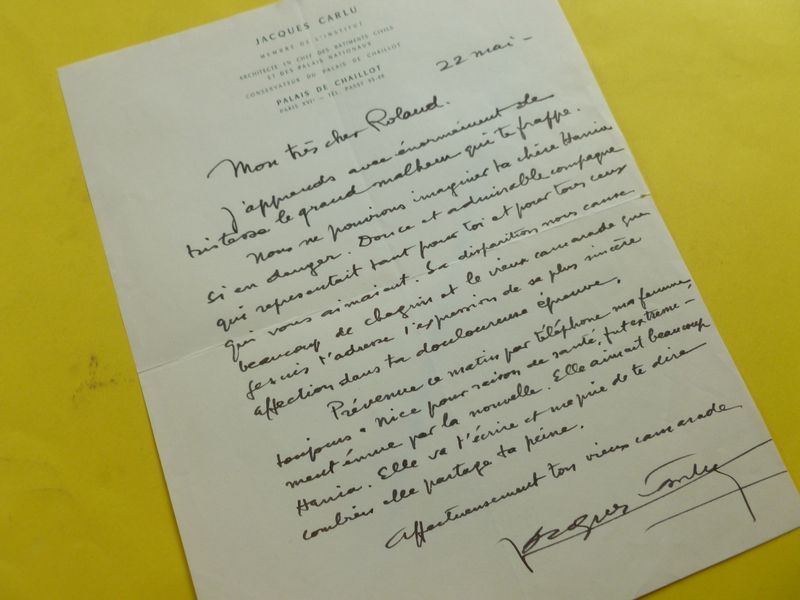 JACQUES CARLU
MEMBRE DE L'INSTITUT
ARCHITECTE EN CHEF DES BATIMENTS CIVILS
ET DES PALAIS NATIONAUX
CONSERVATEUR DU PALAIS DE CHAILLOT
PALAIS DE CHAILLOT
PARIS XVIe - TEL. PASSY
22 mai -
Mon très cher Roland.
J'apprends avec énormément de
tristesse le grand malheur qui te frappe.
Nous ne pouvions imaginer ta chère Hania
si en danger. Douce et admirable compagne
qui representait tant pour toi et pour tous ceux
qui vous aimaient. Sa disparition nous cause
beaucoup de chagrin et le vieux camarade que
je suis t'adresse l'expression de sa plus sincère
affection dans ta douloureuse épreuve.
Prévenue ce matin par téléphone ma femme,
toujours à Nice pour raison de santé, fut extrême-
ment émue par la nouvelle. Elle aimait beaucoup
Hania. Elle va t'écrire et me prie de te dire
combien elle partage ta peine.
Affectueusement ton vieux camarade
Jacques Carlu